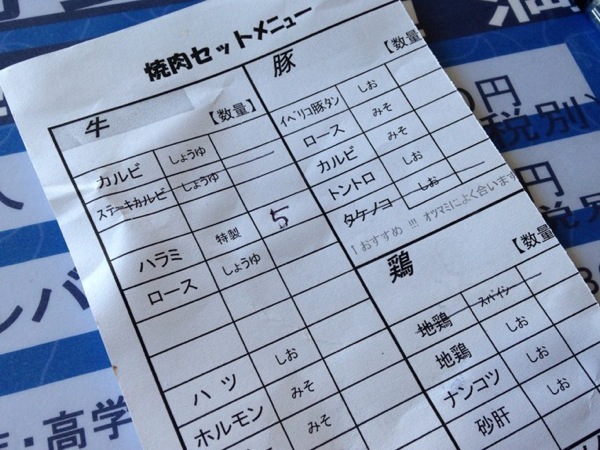 焼肉セットメニュー
牛 【数量】
カルビ しょうゆ
ステーキカルビ しょうゆ
ハラミ 特製 5
ロース しょうゆ
ハツ しお
ホルモン みそ
みそ
豚 【数量
イベリコ豚タン しお
ロース みそ
カルビ みそ
トントロ しお
タケノコ しお
↑おすすめ !!! オツマミによく合います
鶏 【数量
地鶏 スパイシー
地鶏 しお
ナンコツ しお
砂肝 しお
円
税別)
高学